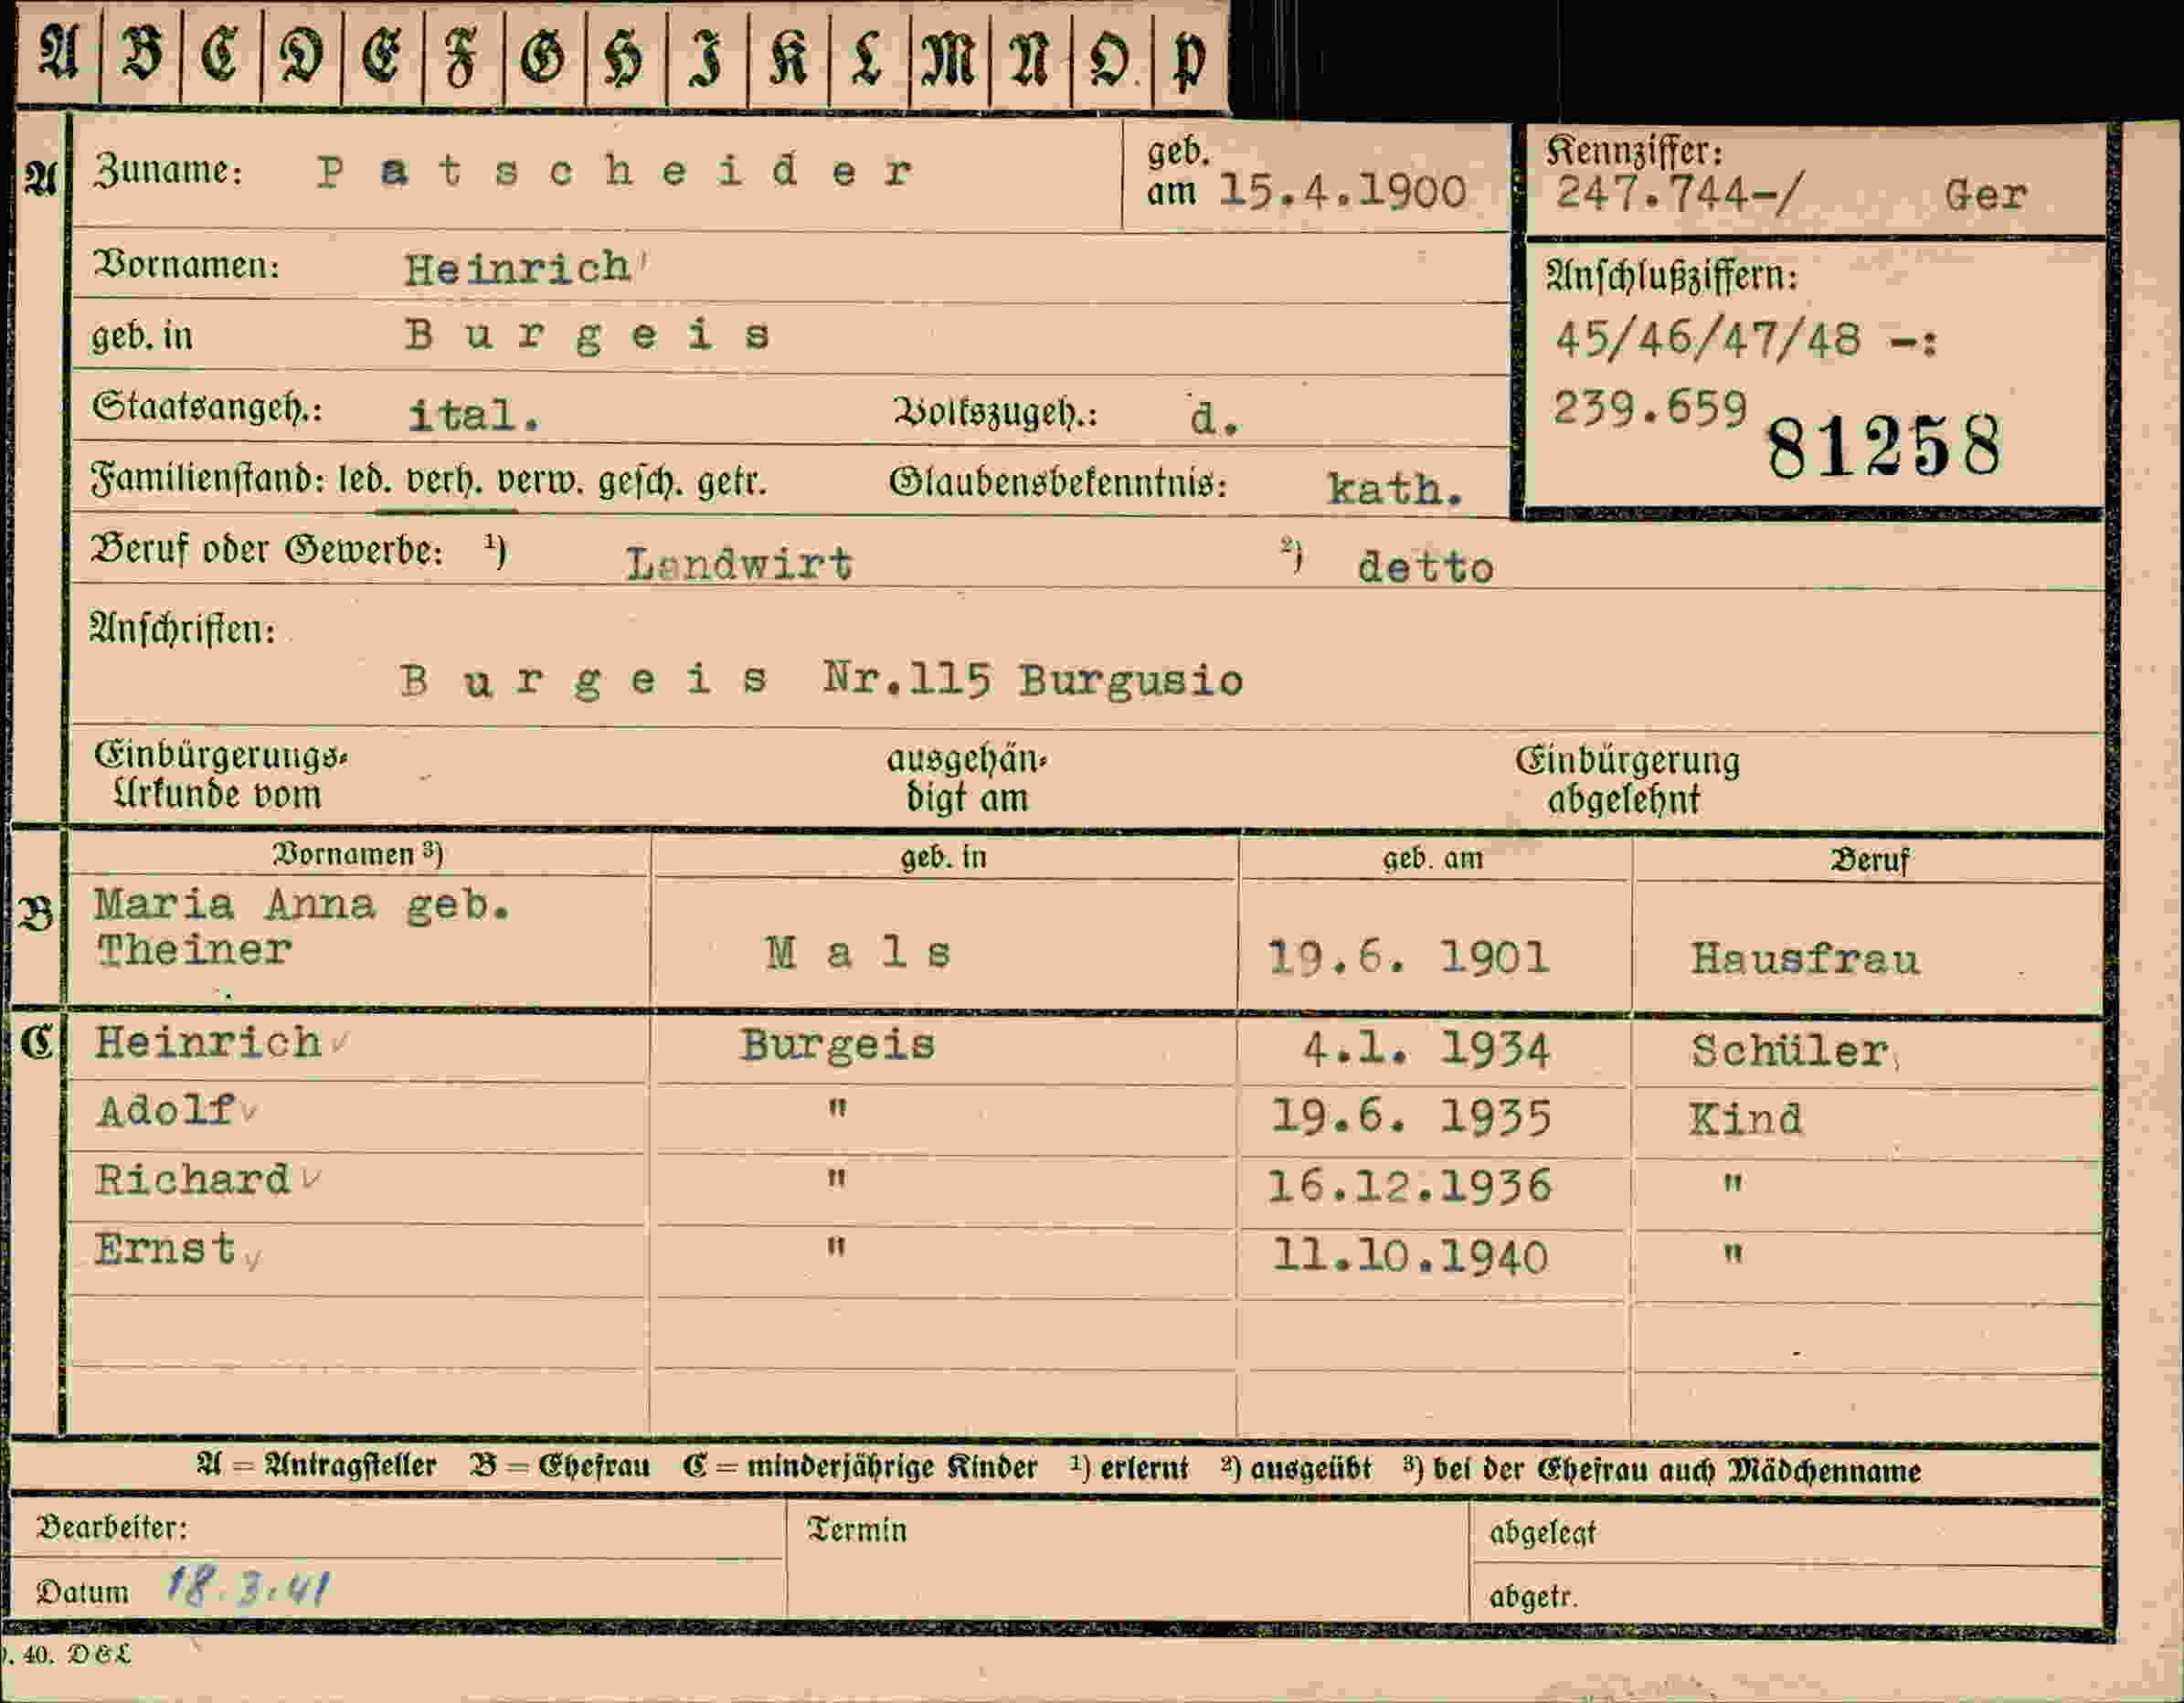 A B C D E F G H I K L M N O P
A Zuname: Patscheider geb. am 15.4.1900 Kennziffer: 247.744-/ Ger
Vornamen: Heinrich
geb. in Burgeis
Anschlußziffern:
45/46/47/48 -:
239.659 81258
Staatsangeh.: ital. Volkszugeh.: d.
Familienstand: led. verh. verw. gesch. getr. Glaubensbekenntnis: kath.
Beruf oder Gewerbe: ¹) Landwirt ²) detto
Anschriften:
Burgeis Nr.115 Burgusio
Einbürgerungs- ausgehän- Einbürgerung
Urkunde vom digt am abgelehnt
Vornamen ³) geb. in geb. am Beruf
B Maria Anna geb.
Theiner Mals 19.6. 1901 Hausfrau
C Heinrich Burgeis 4.1. 1934 Schüler
Adolf " 19.6. 1935 Kind
Richard " 16.12.1936 "
Ernst " 11.10.1940 "
A = Antragsteller B = Ehefrau C = minderjährige Kinder ¹) erlernt ²) ausgeübt ³) bei der Ehefrau auch Mädchenname
Bearbeiter: Termin abgelegt
Datum 18.3.41 abgetr.
. 40. D&L